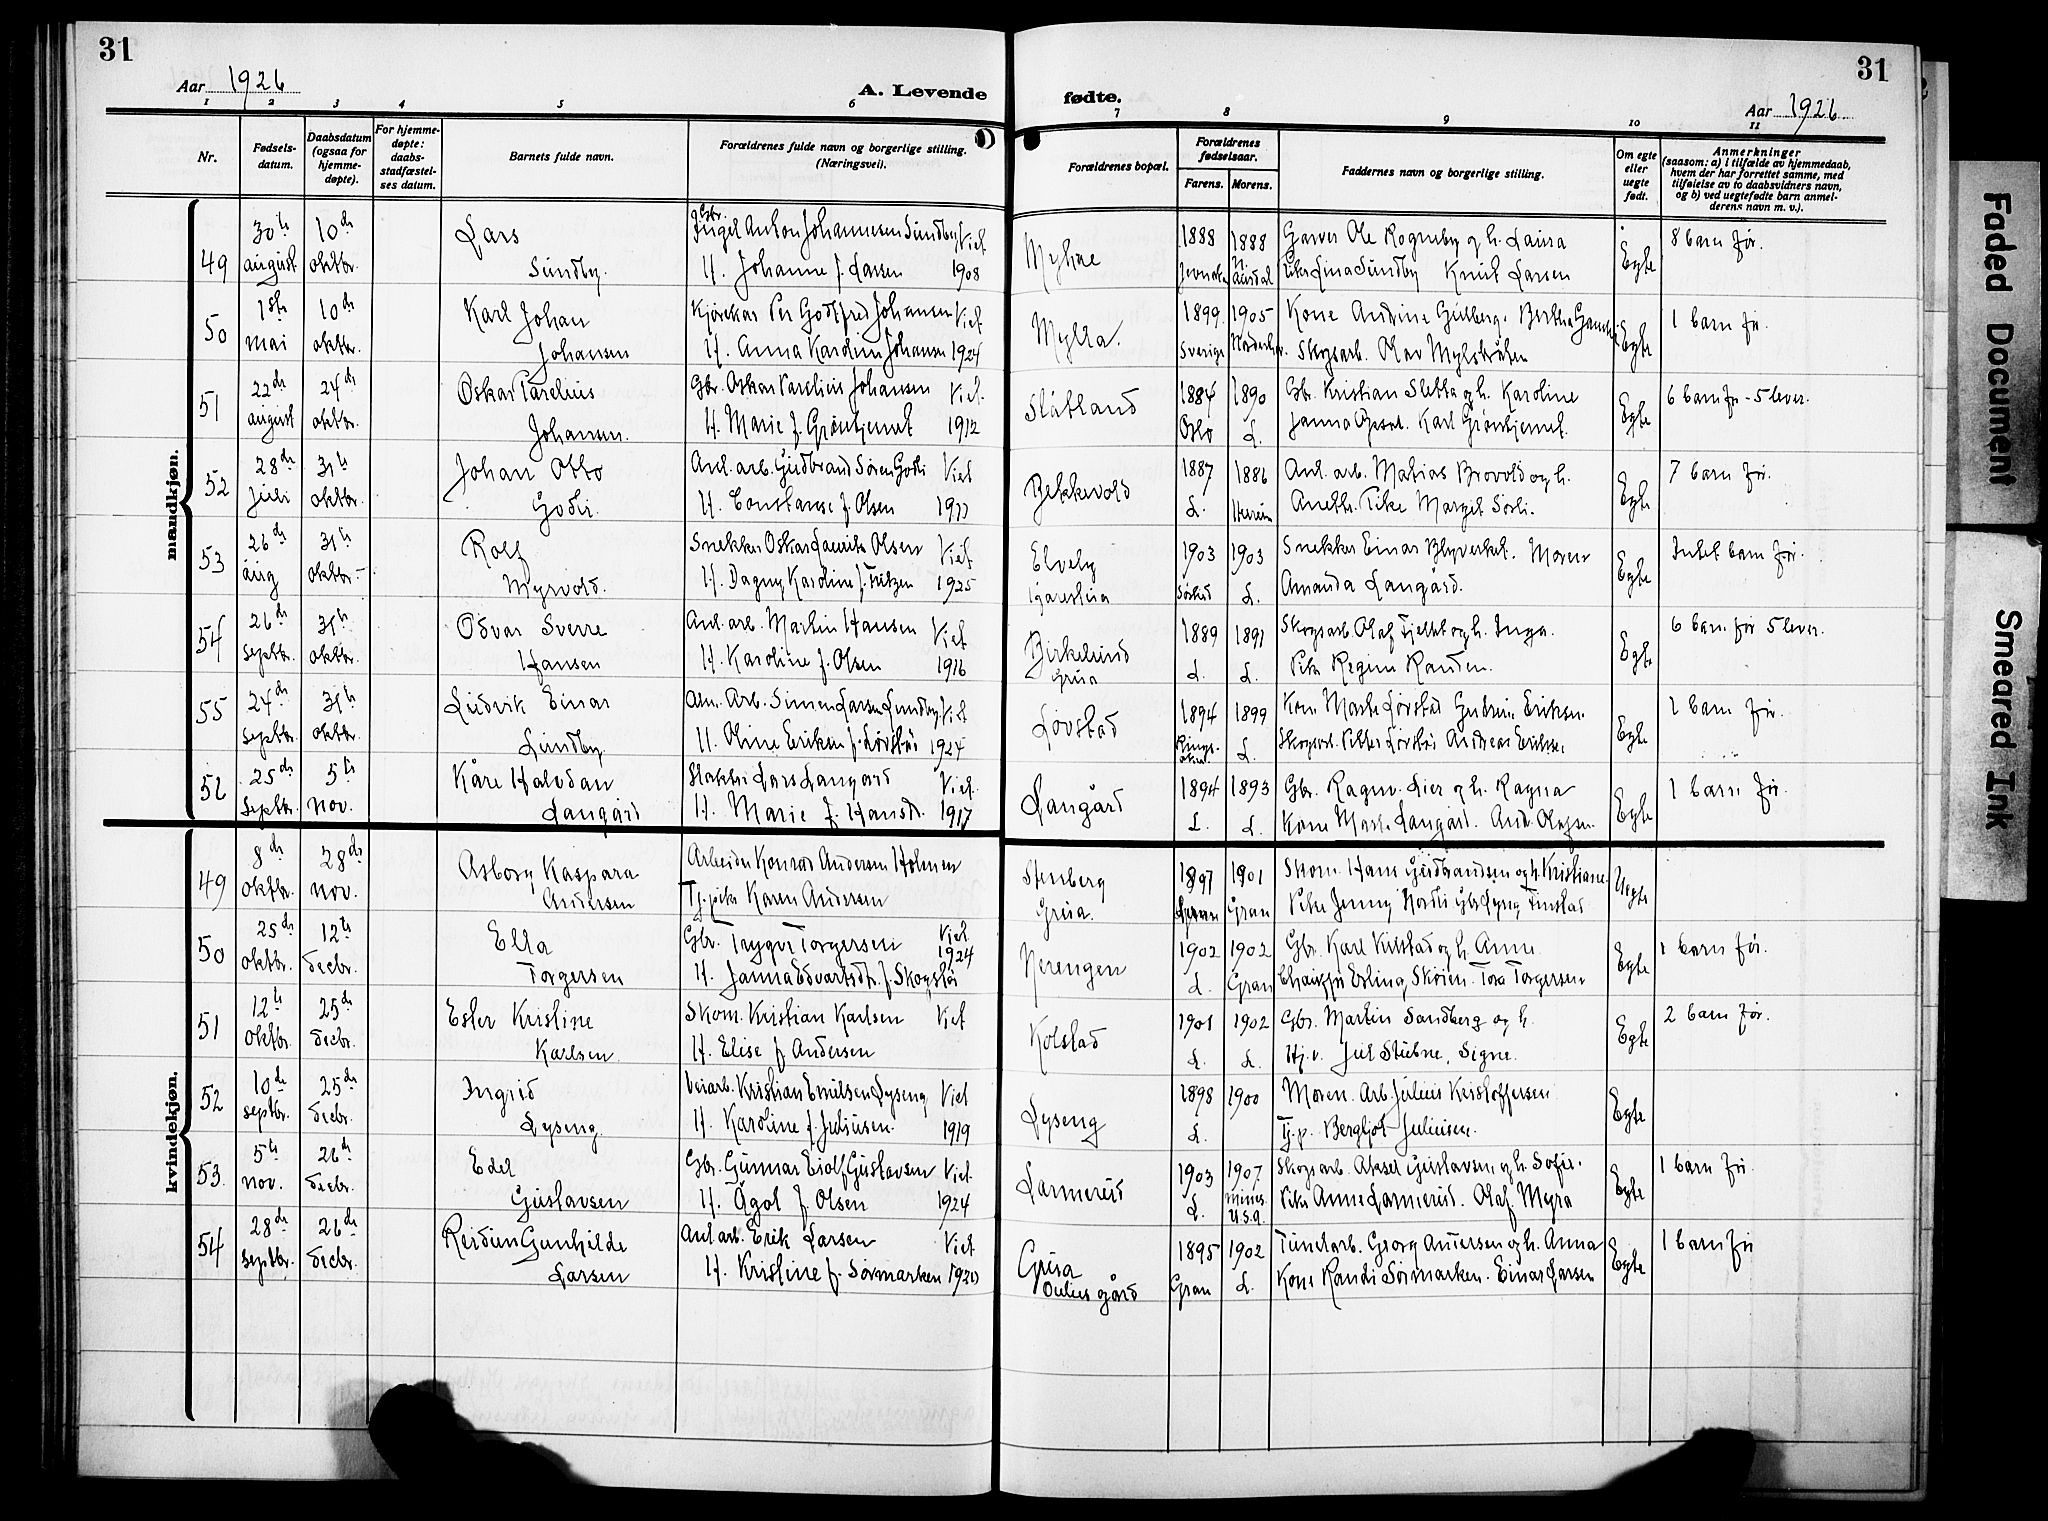 31
Aar 1926
A. Levende
1 2 3 4 5 6
Nr.
Fødsels-
datum.
Daabsdatum
(ogsaa for
hjemme-
døpte).
For hjemme-
døpte:
daabs-
stadfæstel-
ses datum.
Barnets fulde navn.
Forældrenes fulde navn og borgerlige stilling.
(Næringsvei).
mandkjøn.
49 30te august 10de oktbr. Lars
Sundby.
Gbr. Anton Johannesen Sundby Viet
H. Johanne f. Larsen 1908
50 1ste mai 10de oktbr. Karl Johan
Johansen
Kjørekar Per Godtfred Johansen Viet
H. Anna Karoline Johansen 1924
51 22de august 24de oktbr. Oskar Parelius
Johansen.
Gbr. Oskar Parelius Johansen Viet
H. Marie f. Grøntjernet 1912
52 28de juli 31te oktbr. Johan Otto
Godli.
Anl. arb. Gudbrand Søren Godli Viet
H. Constanse f. Olsen 1911
53 26de aug 31te oktbr. Rolf
Myrvold.
Snekker Oskar Laurits Olsen Viet
H. Dagny Karoline f. Fritzen 1925
54 26de septbr. 31te oktbr. Odvar Sverre
Hansen
Anl. arb. Martin Hansen Viet
H. Karoline f. Olsen 1916
55 24de septbr. 31te oktbr. Ludvik Einar
Lundby.
Anl. Arb. Simen Larsen Lundby Viet
H. Oline Eriksen f. Løvstad 1924
56 25de septbr. 5te nov. Kåre Halvdan
Langård
Lars Langård Viet
H. Marie f. Hansdr. 1917
kvindekjøn.
49 8de oktbr. 28de nov. Asborg Kaspara
Andersen
Arbeider Konrad Andersen Holmen
Tj. pike Karen Andersen
50 25de oktbr. 12te decbr. Ella
Torgersen
Gbr. Trygve Torgersen Viet 1924
H. Janna Edvartsdt. f. Skogstad
51 12te oktbr. 25de decbr. Ester Kristine
Karlsen.
Skom. Kristian Karlsen Viet
H. Elise f. Andersen
52 10de septbr. 25de decbr. Ingrid
Lyseng.
Veiarb. Kristian Emilsen Lyseng Viet
H. Karoline f. Juliusen. 1919
53. 5te nov. 26de decbr. Edel
Gustavsen
Gbr. Gunnar Eiolf Gustavsen Viet
H. Ågot f. Olsen 1924
54 28de septbr. 26de decbr. Reidun Gunhilde
Larsen
Anl. arb. Erik Larsen Viet
H. Kristine f. Sørmarken 1920
31
fødte.
Aar 1926
7 8 9 10 11
Forældrenes bopæl.
Forældrenes
fødselsaar.
Farens. Morens.
Faddernes navn og borgerlige stilling.
Om egte
eller
uegte
født.
Anmerkninger
(saasom: a) i tilfælde av hjemmedaab,
hvem der har forrettet samme, med
tilføielse av to daabsvidners navn,
og b) ved uegtefødte barn anmel-
derens navn m. v.).
Myhre 1888 Jevnaker 1888 N. Aurdal Garver Ole Rogneby og h. Laura Egte 8 barn før.
Pike Lina Sundby Knut Larsen
Mylla. 1899 Sverige 1905 Norderhov. Kone Andrine Gulberg. Bertha Egte 1 barn før.
Skogsarb. Olav Mylshåen
Slåtland 1884 Oslo 1890 L. Gbr. Kristian Sletta og h. Karoline Egte 6 barn før - 5 lever.
Janna Karl Grøntjernet.
Bekkevold 1887 L. 1886 Hurum Anl. arb. Matias Brovold og h. Egte 7 barn før.
Anette. Pike Margit Sørli.
Elvely 1903 Sørkid 1903 L. Snekker Einar Blyverket. Moren Egte Intet barn før.
Amanda Langård.
Birkelund Grua 1889 L. 1891 L. Skogsarb. Olaf Fjeldst og h. Inga. Egte 6 barn før 5 lever.
Pike Regine Randen.
Løvstad 1894 Ringsaker 1899 L. Kone Marte Løvstad Gudrun Eriksen Egte 1 barn før.
Skogsarb. Petter Løvstad Andreas Eriksen
Langård 1894 L. 1893 L. Gbr. Ragnv. Lier og h. Ragna Egte 1 barn før.
Kone Marte Langård. And. Olafsen
Stenberg Grua. 1897 Gran 1901 Gran Skom. Hans Gudbrandsen og h. Kristiane. Uegte
Pike Jenny Nordli Gbr. Lyng Tinstad
Nerengen 1902 L. 1902 Gran Gbr. Karl Kilstad og h. Anne Egte 1 barn før.
Chauffør Erling Skøien. Tora Torgersen
Kolstad 1901 L. 1902 L. Gbr. Martin Sandberg og h. Egte 2 barn før.
Hj. v. Jul Stubne, Signe.
Lyseng 1898 L. 1900 Moren. Arb. Julius Kristoffersen Egte
Tj. p. Bergljot Juliusen.
Larmerud 1903 L. 1907 Mines. U.S.a. Skogsarb. Aksel Gustavsen og h. Sofie. Egte 1 barn før
Pike Anne Larmerud. Olaf Myra
Grua gård 1895 Gran 1902 L. Tunelarb. Georg Andersen og h. Anna Egte 1 barn før
Kone Randi Sørmarken. Einar Larsen
Faded Document
Smeared Ink